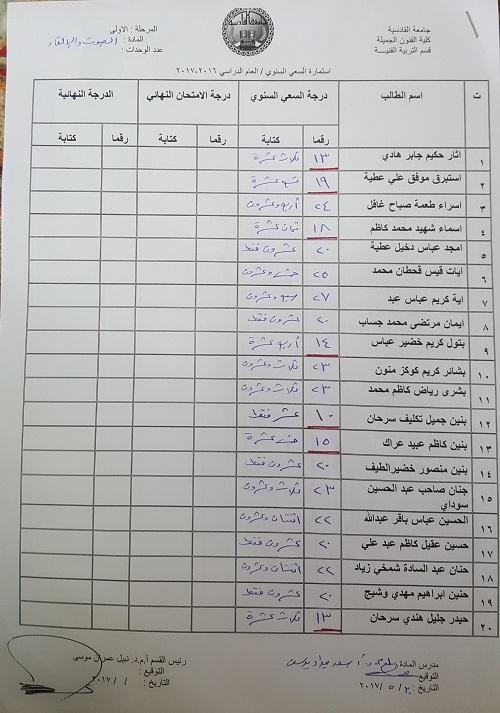 جامعة القادسية
كلية الفنون الجميلة
قسم التربية الفنية
المرحلة : الاولى
المادة : الصوت والإلقاء
عدد الوحدات :
استمارة السعي السنوي / العام الدراسي ٢٠١٦-٢٠١٧
ت اسم الطالب درجة السعي السنوي درجة الامتحان النهائي الدرجة النهائية
رقما كتابة رقما كتابة رقما كتابة
١ اثار حكيم جابر هادي ١٣ ثلاث عشرة
٢ استبرق موفق علي عطية ١٩ تسع عشرة
٣ اسراء طعمة صباح غافل ٢٤ أربع وعشرون
٤ اسماء شهيد محمد كاظم ١٨ ثمان عشرة
٥ امجد عباس دخيل عطية ٢٠ عشرون فقط
٦ ايات قيس قحطان محمد ٢٥ خمس وعشرون
٧ اية كريم عباس عبد ٢٧ سبع وعشرون
٨ ايمان مرتضى محمد جساب ٢٠ عشرون فقط
٩ بتول كريم خضير عباس ١٤ أربع عشرة
١٠ بشائر كريم كوكز منون ٢٣ ثلاث وعشرون
١١ بشرى رياض كاظم محمد ٢٣ ثلاث وعشرون
١٢ بنين جميل تكليف سرحان ١٠ عشر فقط
١٣ بنين كاظم عبيد عراك ١٥ خمس عشرة
١٤ بنين منصور خضيرالطيف ٢٠ عشرون فقط
١٥ جنان صاحب عبد الحسين سوداي ٢٣ ثلاث وعشرون
١٦ الحسين عباس باقر عبدالله ٢٢ اثنتان وعشرون
١٧ حسين عقيل كاظم عبد علي ٢٠ عشرون فقط
١٨ حنان عبد السادة شمخي زياد ٢٢ اثنتان وعشرون
١٩ حنين ابراهيم مهدي وشيج ٢٠ عشرون فقط
٢٠ حيدر جليل هندي سرحان ١٣ ثلاث عشرة
مدرس المادة :
التوقيع :
التاريخ : ٢ / ٥ / ٢٠١٧
رئيس القسم أ.م.د. نبيل عمران موسى
التوقيع :
التاريخ : / / ٢٠١٧